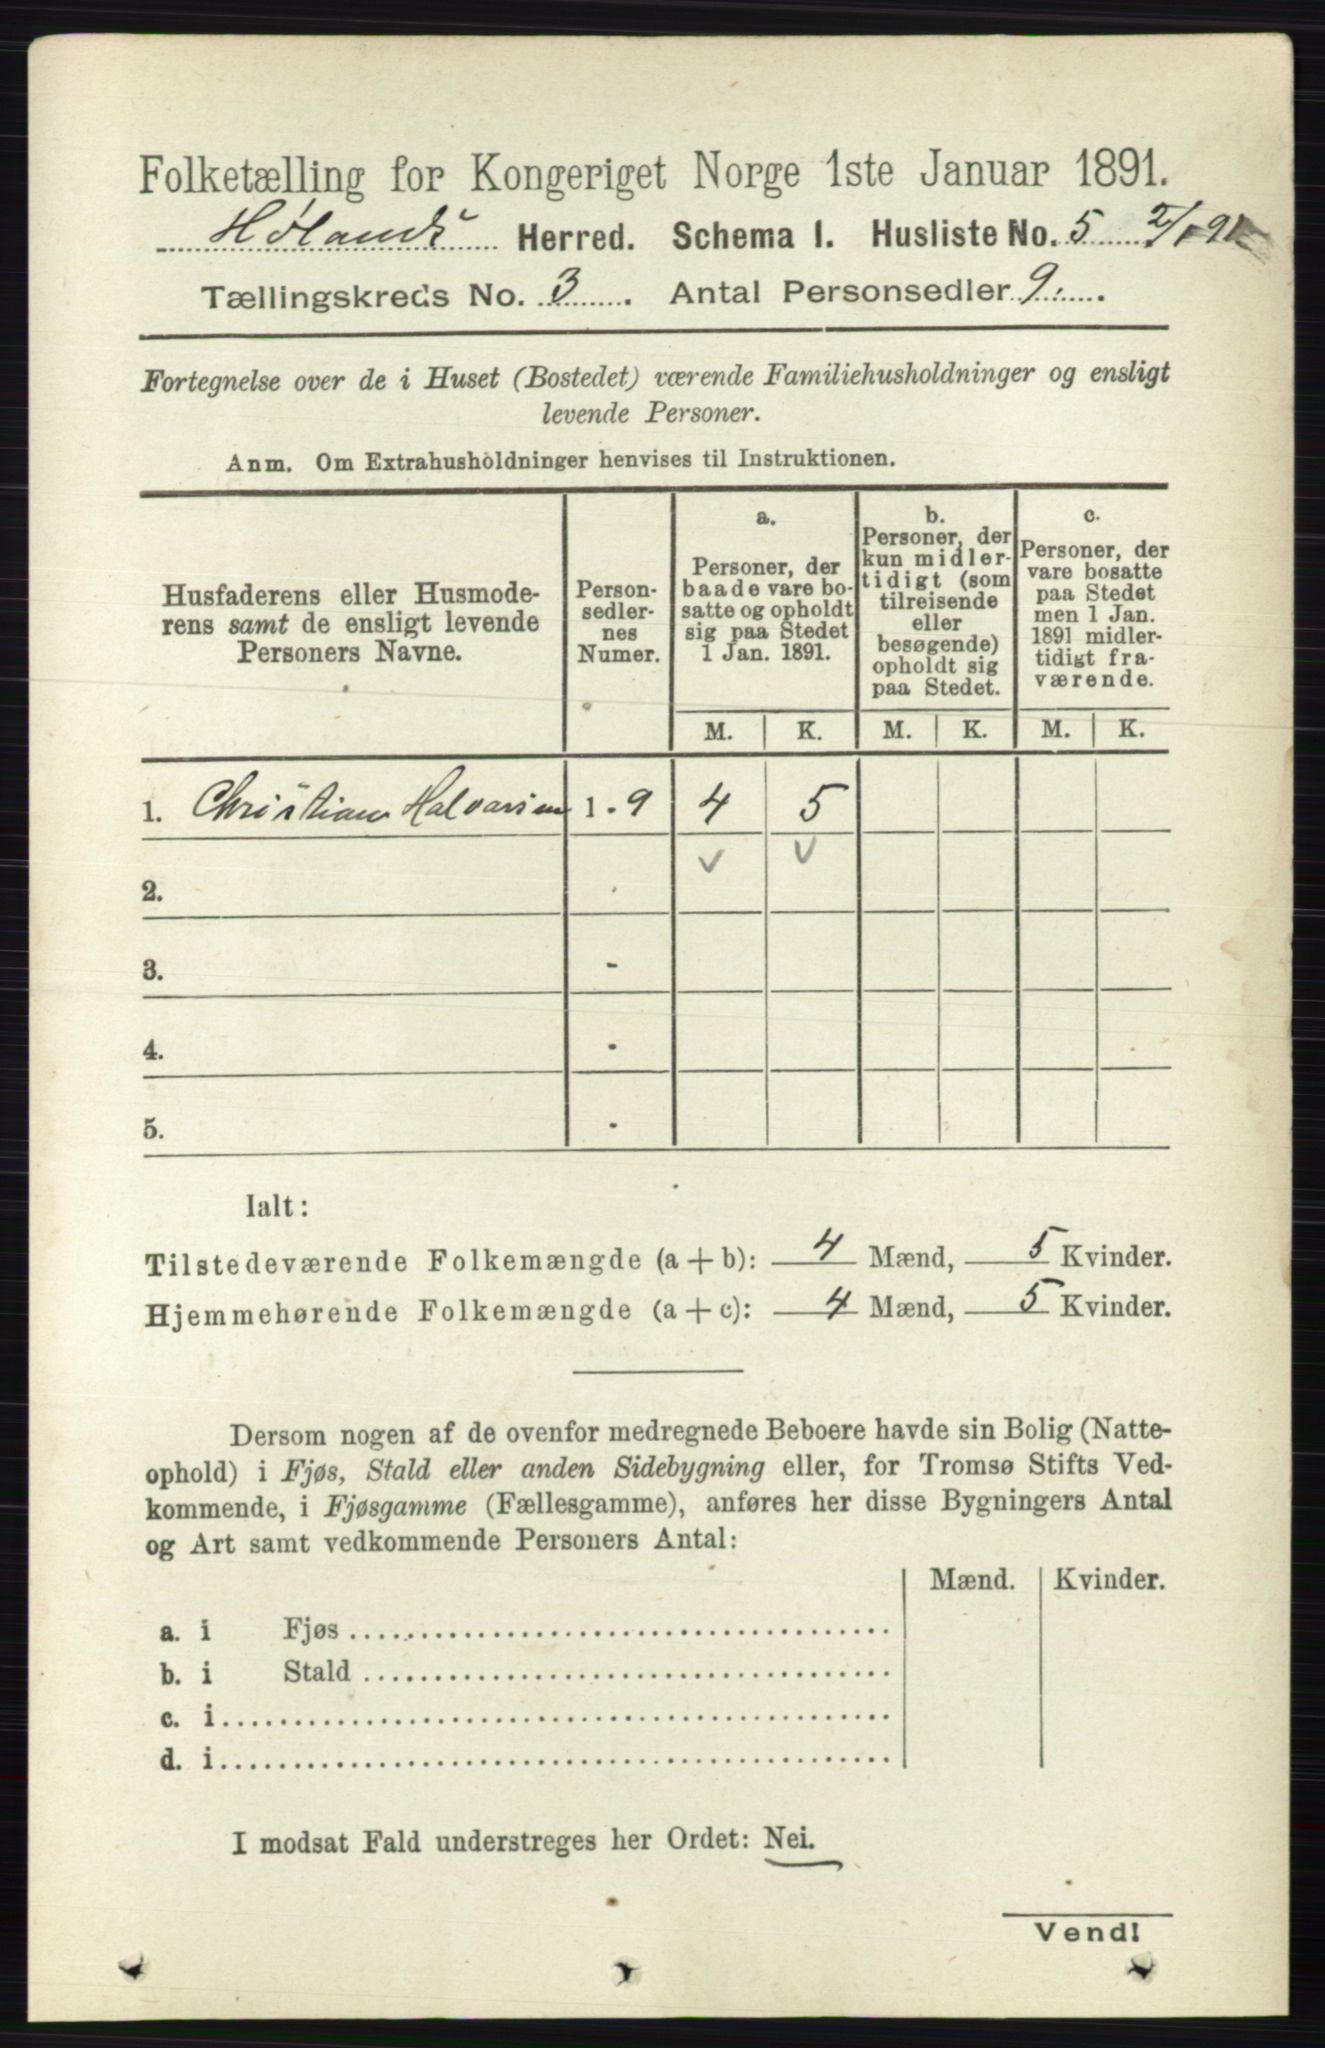 Folketælling for Kongeriget Norge 1ste Januar 1891.
Hølands Herred. Schema I. Husliste No. 5 2/1 91
Tællingskreds No. 3. Antal Personsedler 9.
Fortegnelse over de i Huset (Bostedet) værende Familiehusholdninger og ensligt
levende Personer.
Anm. Om Extrahusholdninger henvises til Instruktionen.
Husfaderens eller Husmode-
rens samt de ensligt levende
Personers Navne.
Person-
sedler-
nes
Numer.
a.
Personer, der
baade vare bo-
satte og opholdt
sig paa Stedet
1 Jan. 1891.
b.
Personer, der
kun midler-
tidigt (som
tilreisende
eller
besøgende)
opholdt sig
paa Stedet.
c.
Personer, der
vare bosatte
paa Stedet
men 1 Jan.
1891 midler-
tidigt fra-
værende.
M. K. M. K. M. K.
1. Christian Halvorsen 1 - 9 4 5
2.
3. -
4. -
5. -
Ialt:
Tilstedeværende Folkemængde (a + b): 4 Mænd, 5 Kvinder.
Hjemmehørende Folkemængde (a + c): 4 Mænd, 5 Kvinder.
Dersom nogen af de ovenfor medregnede Beboere havde sin Bolig (Natte-
ophold) i Fjøs, Stald eller anden Sidebygning eller, for Tromsø Stifts Ved-
kommende, i Fjøsgamme (Fællesgamme), anføres her disse Bygningers Antal
og Art samt vedkommende Personers Antal:
Mænd. Kvinder.
a. i Fjøs
b. i Stald
c. i
d. i
I modsat Fald understreges her Ordet: Nei.
Vend!